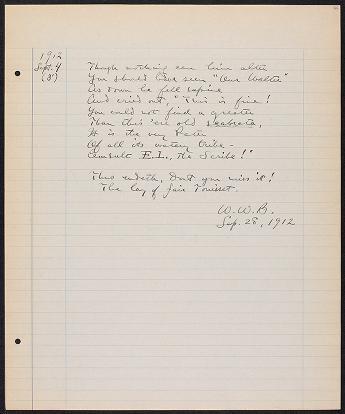 1912
Sept. 4
(8)
Though nothing can him alter
You should have seen "Our Walter"
As down he fell supine
And cried out, "This is fine!
You could not find a greater
Than this 'ere old
It is the very Pater
Of all its watery tribe -
Consult E.L., the Scribe!"
Thus endeth, Don't you miss it!
The lay of fair Touisset.
W.W.B.
Sep. 28, 1912